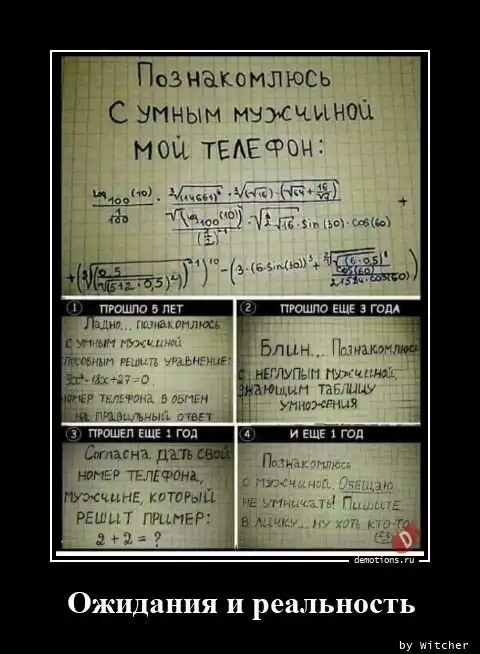 Познакомлюсь
с умным мужчиной
мой телефон:
① ПРОШЛО 5 ЛЕТ
Ладно... познакомлюсь
с умным мужчиной
способным решить уравнение:
3x²-18x+27=0.
номер телефона в обмен
на правильный ответ
② ПРОШЛО ЕЩЕ 3 ГОДА
Блин... Познакомлюсь
с неглупым мужчиной,
знающим таблицу
умножения
③ ПРОШЕЛ ЕЩЕ 1 ГОД
Согласна дать свой
номер телефона,
мужчине, который
решит пример:
2+2=?
④ И ЕЩЕ 1 ГОД
Познакомлюсь
с мужчиной. Обещаю
не умничать! Пишите
в личку... ну хоть кто-то
demotions.ru
Ожидания и реальность
by Witcher